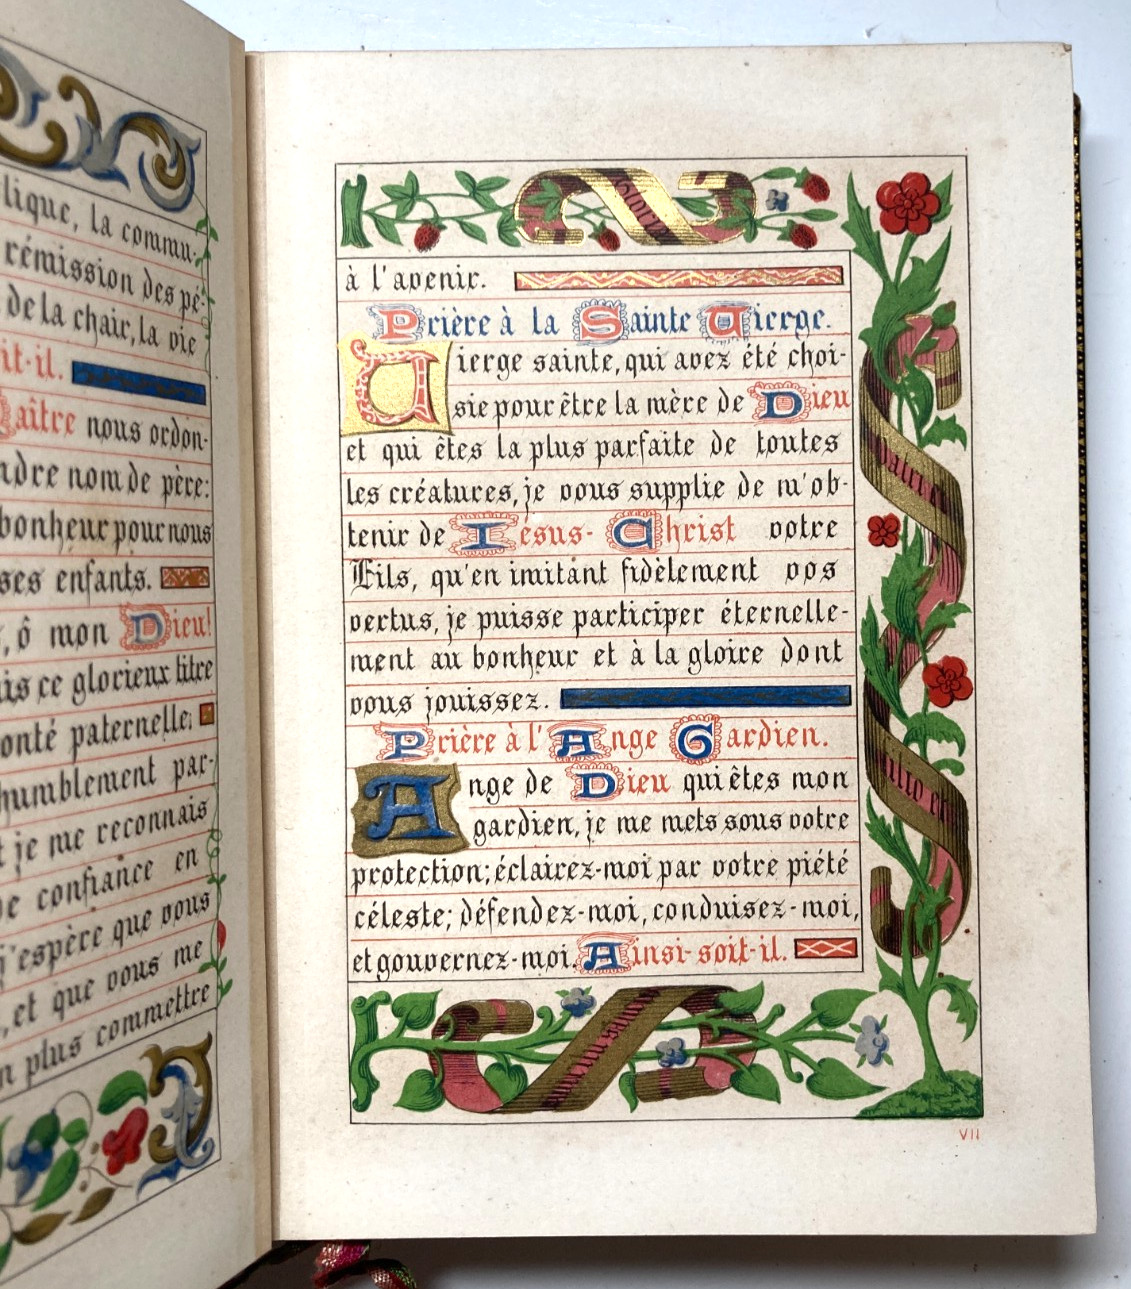 lique, la commu-
rémission des pé-
de la chair, la vie
it-il.
aître nous ordon-
ndre nom de père:
bonheur pour nous
ses enfants.
, ô mon Dieu!
is ce glorieux titre
onté paternelle;
humblement par-
t je me reconnais
de confiance en
j'espère que vous
, et que vous me
n plus commettre
Gloria
à l'avenir.
Prière à la Sainte Vierge.
Vierge sainte, qui avez été choi-
sie pour être la mère de Dieu
et qui êtes la plus parfaite de toutes
les créatures, je vous supplie de m'ob-
tenir de Jésus-Christ votre
Fils, qu'en imitant fidèlement vos
vertus, je puisse participer éternelle-
ment au bonheur et à la gloire dont
vous jouissez.
Prière à l'Ange Gardien.
Ange de Dieu qui êtes mon
gardien, je me mets sous votre
protection; éclairez-moi par votre piété
céleste; défendez-moi, conduisez-moi,
et gouvernez-moi. Ainsi-soit-il.
patri et
filio et
VII